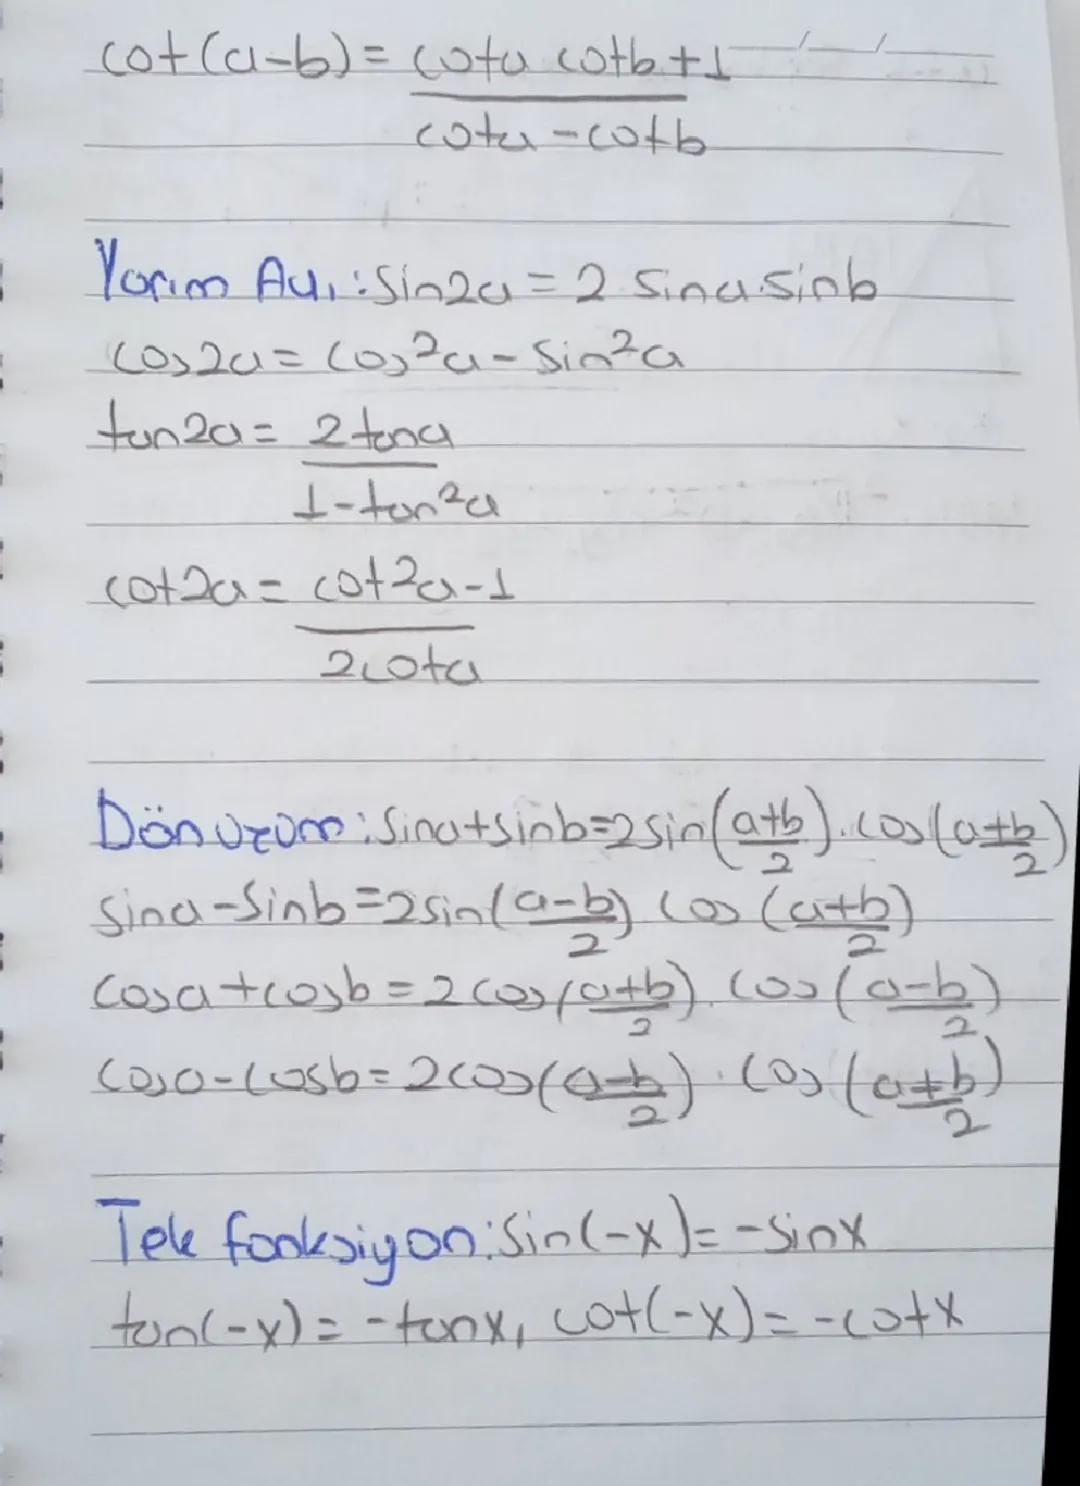 cot(a-b)= cota cotb+1
cota-cotb
Yarım Açı: Sin2a = 2 sina.sinb
cos2a = cos²a - sin²a
tan2a = 2tana
1-tan²a
cot2a = cot2a-1
2cota
Dönüzüm: Sina+sinb=2sin(a+b/2).cos(a+b/2)
sina-Sinb=2sin(a-b/2).cos(a+b/2)
cosa+cosb=2cos(a+b/2).cos(a-b/2)
cosa-cosb=2cos(a-b/2).cos(a+b/2)
Tek fonksiyon: Sin(-x)=-sinx
tan(-x)=-tanx, cot(-x)=-cotx